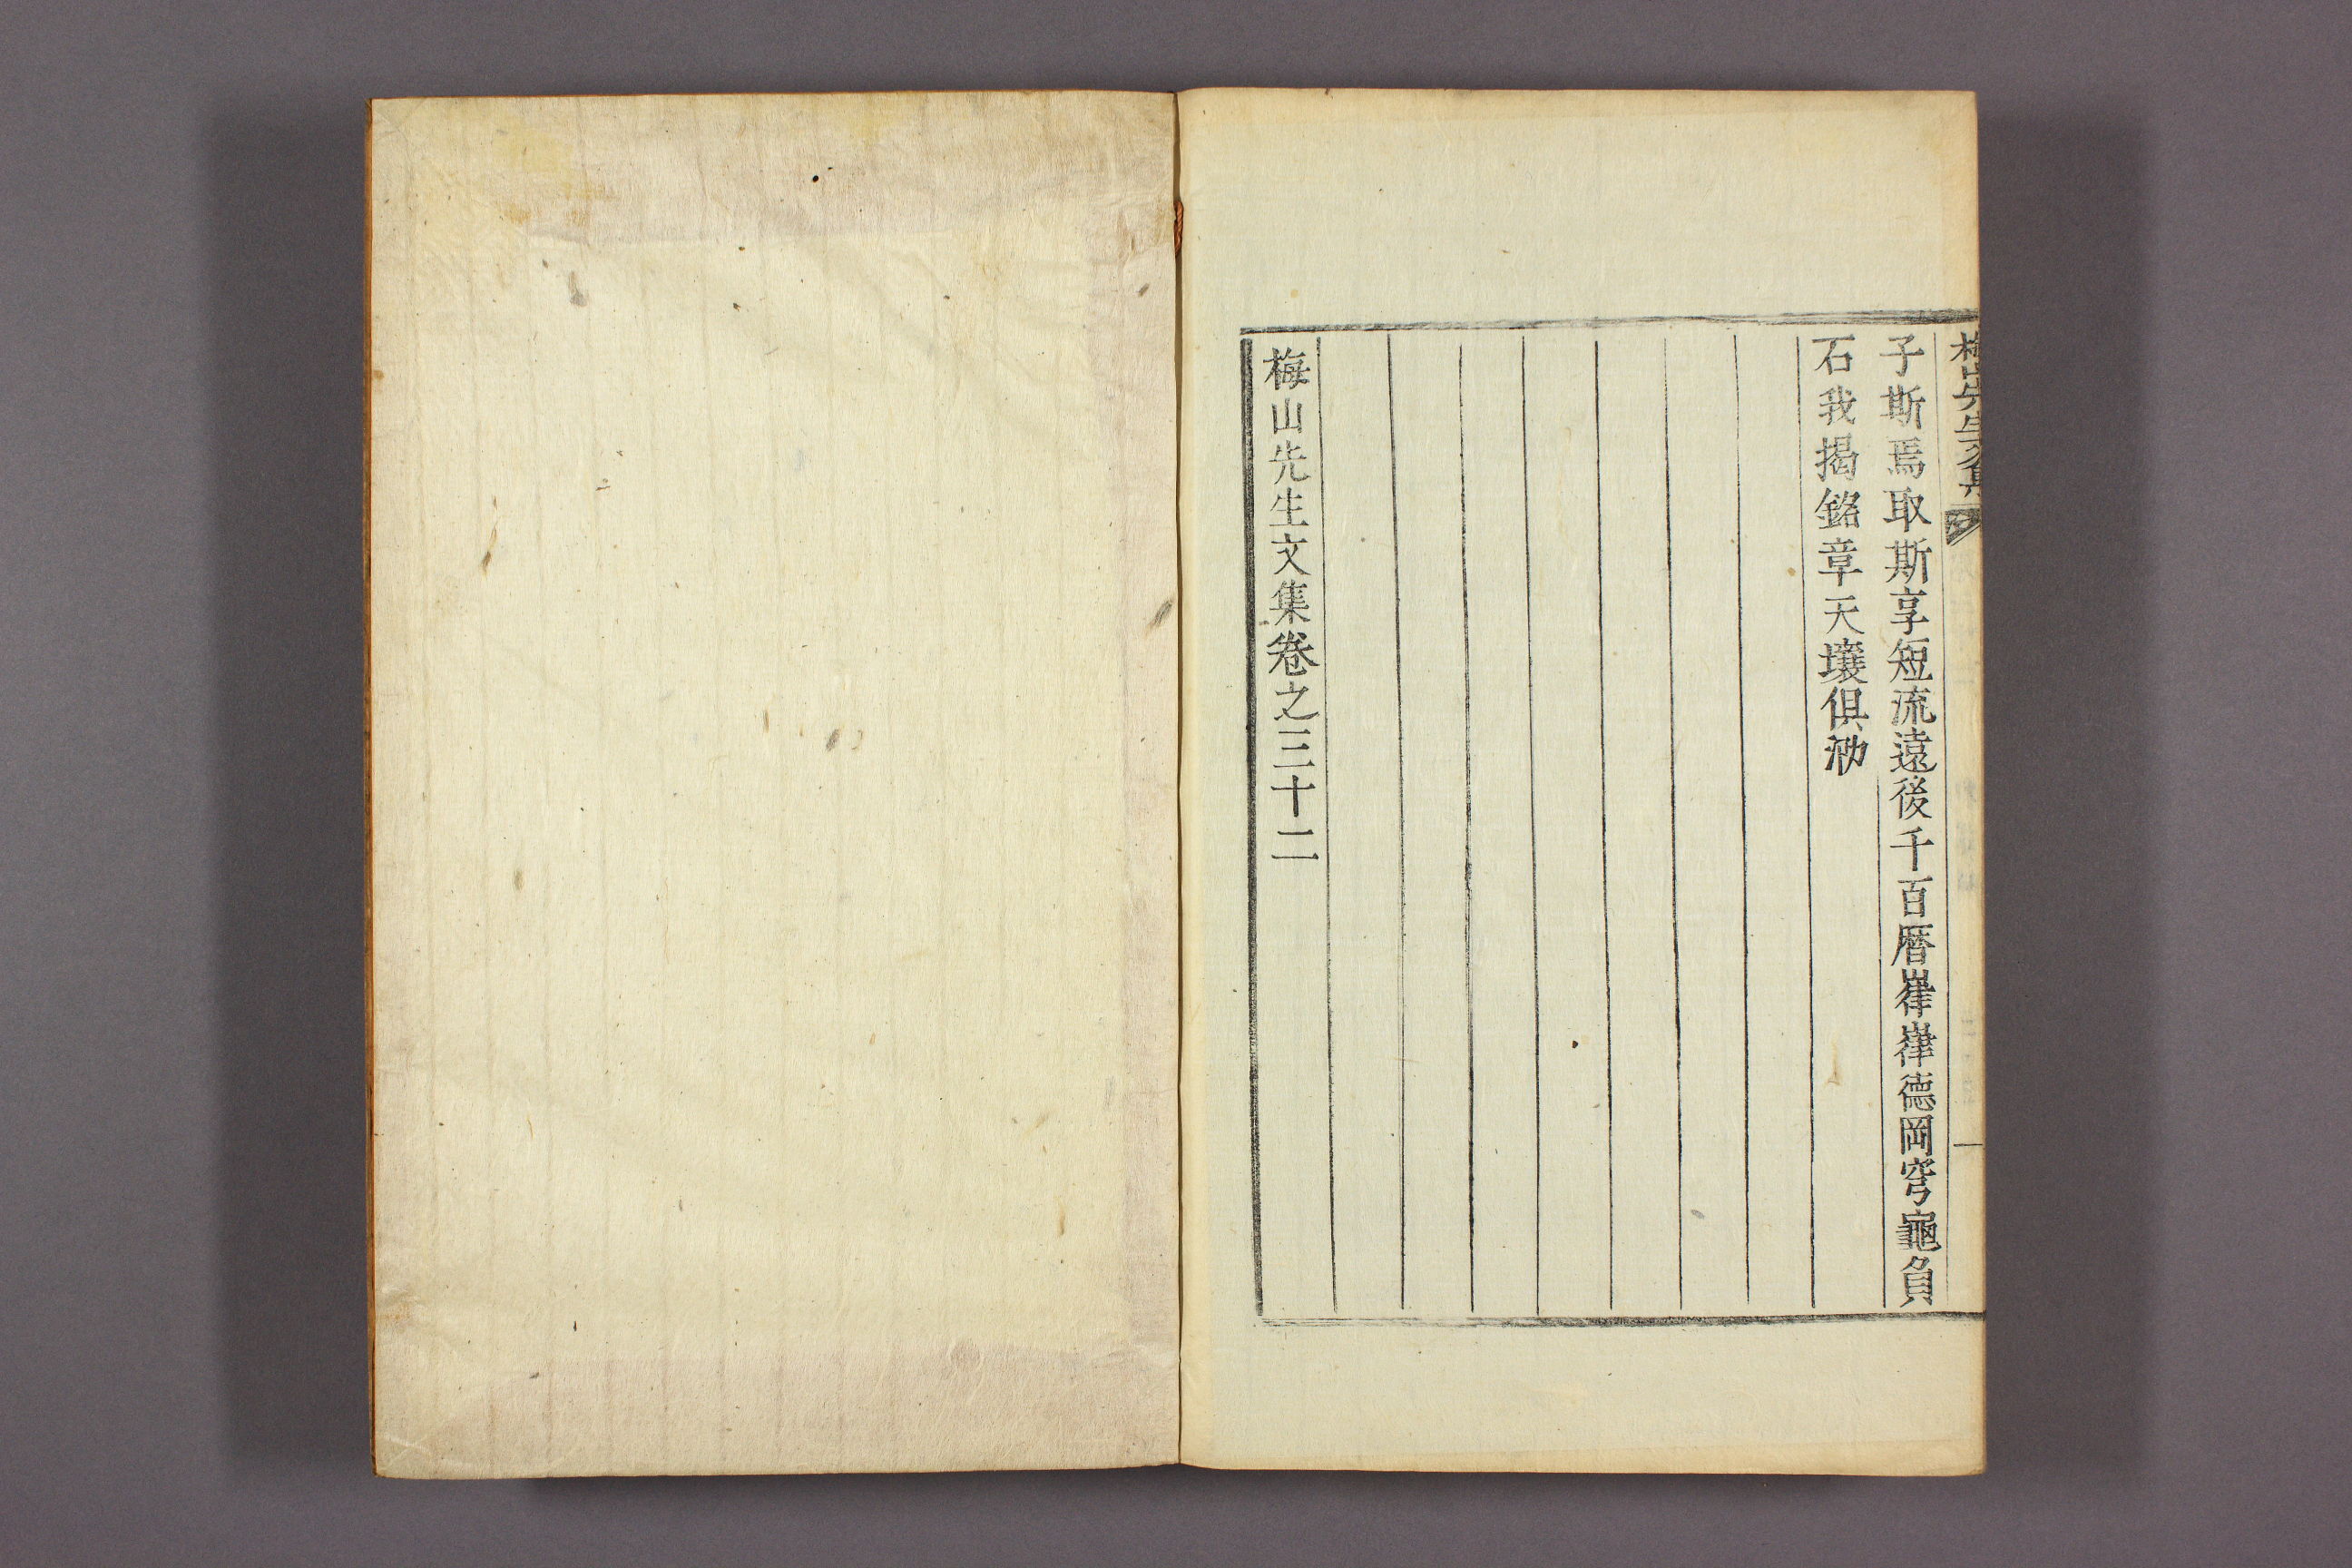 梅山先生文集
子斯焉取斯享短流遠後千百曆嵂嵂德岡穹龜負
石我揭銘章天壤俱泐
梅山先生文集卷之三十二